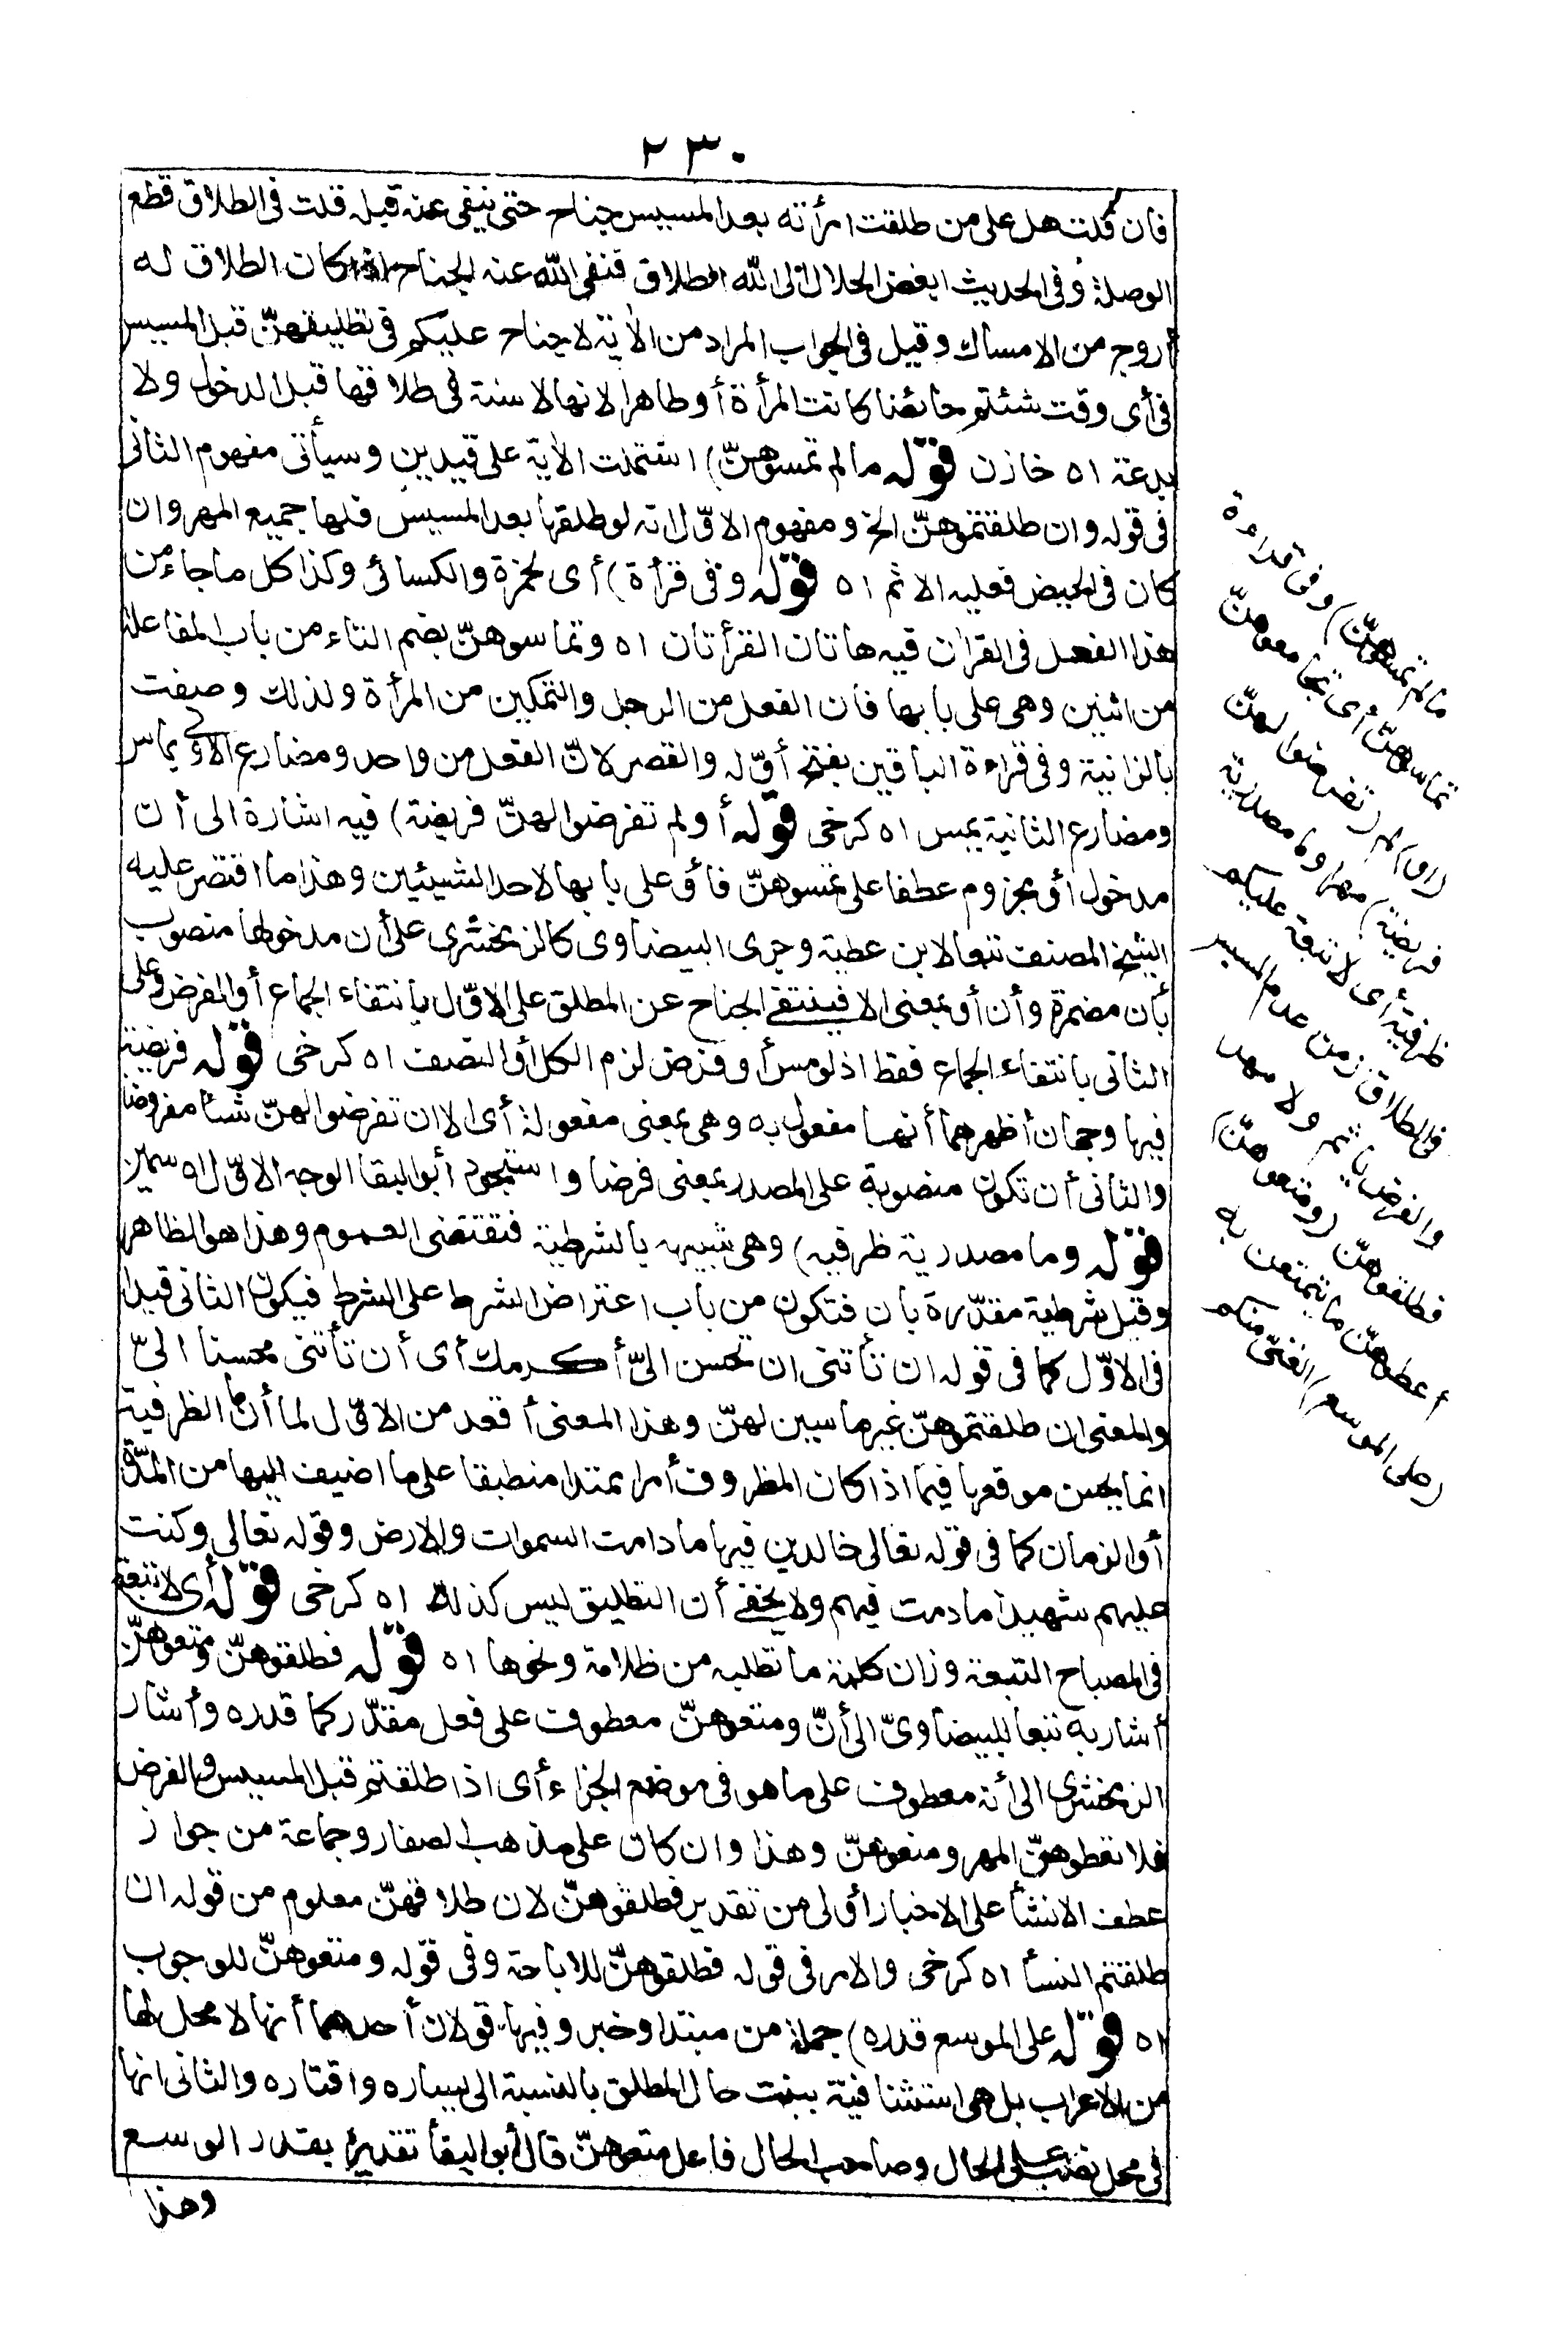 ٢٣٠
فان قلت هل على من طلقت امرأته بعد المسيس جناح حتى ينفى عنه قبله قلت فى الطلاق قطع
الوصلة وفى الحديث ابغض الحلال الى الله الطلاق فنفى الله عنه الجناح اذا كان الطلاق له
أروج من الامساك وقيل فى الجواب المراد من الآية لا جناح عليكم فى تطليقهنّ قبل المسيس
فى أى وقت شئتم حائضا كانت المرأة أو طاهرا لانها لا سنة فى طلاقها قبل الدخول ولا
بدعة اه خازن قوله ما لم تمسوهنّ) اشتملت الآية على قيدين وسيأتى مفهوم الثانى
فى قوله وان طلقتموهنّ الخ ومفهوم الاوّل انه لو طلقها بعد المسيس فلها جميع المهر وان
كان فى الحيض فعليه الاثم اه قوله وفى قرأة) أى لحمزة والكسائى وكذا كل ما جاء من
هذا الفعل فى القرآن فيه هاتان القرأتان اه وتماسوهنّ بضم التاء من باب المفاعلة
من اثنين وهى على بابها فان الفعل من الرجل والتمكين من المرأة ولذلك وصفت
بالزانية وفى قراءة الباقين بفتح أوّله والقصر لانّ الفعل من واحد ومضارع الاولى يماس
ومضارع الثانية يمس اه كرخى قوله أو لم تفرضوا لهنّ فريضة) فيه اشارة الى أن
مدخول أو مجزوم عطفا على تمسوهنّ فأو على بابها لاحد الشيئين وهذا ما اقتصر عليه
الشيخ المصنف تبعا لابن عطية وجرى البيضاوى كالزمخشرى على أن مدخولها منصوب
بأن مضمرة وأن أو بمعنى الا فينتفى الجناح عن المطلق على الاوّل بانتفاء الجماع أو الفرض وعلى
الثانى بانتفاء الجماع فقط اذ لو مس أو فرض لزم الكل أو النصف اه كرخى قوله فريضة
فيها وجهان أظهرهما أنها مفعول به وهى بمعنى مفعولة أى الا ان تفرضوا لهنّ شيئا مفروضا
والثانى أن تكون منصوبة على المصدر بمعنى فرضا واستجود أبو البقا الوجه الاوّل اه سمين
قوله وما مصدرية ظرفيه) وهى شبيهه بالشرطية فتقتضى العموم وهذا هو الظاهر
وقيل شرطية مقدّرة بان فتكون من باب اعتراض الشرط على الشرط فيكون الثانى قيدا
فى الاوّل كما فى قوله ان تأتنى ان تحسن الىّ أكرمك أى أن تأتنى محسنا الىّ
والمعنى ان طلقتموهنّ غير ماسين لهنّ وهذا المعنى أقعد من الاوّل لما أن ما الظرفية
انما يحسن موقعها فيما اذا كان المظروف أمرا ممتدا منطبقا على ما اضيف اليها من المدّة
أو الزمان كما فى قوله تعالى خالدين فيها ما دامت السموات والارض وقوله تعالى وكنت
عليهم شهيدا ما دمت فيهم ولا يخفى أن التطليق ليس كذلك اه كرخى قوله أى لا تبعة
فى المصباح التبعة وزان كلمة ما تطلبه من ظلامة ونحوها اه قوله فطلقوهنّ ومتعوهنّ
أشار به تبعا للبيضاوىّ الى أنّ ومتعوهنّ معطوف على فعل مقدّر كما قدره وأشار
الزمخشرى الى أنه معطوف على ما هو فى موضع الجزاء أى اذا طلقتم قبل المسيس والفرض
فلا تعطوهنّ المهر ومتعوهنّ وهذا وان كان على مذهب الصفار وجماعة من جواز
عطف الانشأ على الاخبار أولى من تقدير فطلقوهنّ لان طلاقهنّ معلوم من قوله ان
طلقتم النسأ اه كرخى والامر فى قوله فطلقوهنّ للاباحة وفى قوله ومتعوهنّ للوجوب
اه قوله على الموسع قدره) جملة من مبتدا وخبر وفيها قولان أحدهما أنها لا محل لها
من الاعراب بل هى استئنافية بينت حال المطلق بالنسبة الى يساره واقتاره والثانى انها
فى محل نصب على الحال وصاحب الحال فاعل متعوهنّ قال أبو البقأ تقديره بقدر الوسع
وهذا
ما لم تمسوهنّ) وفى قراءة
تماسوهنّ أى تجامعوهنّ
(أو) لم (تفرضوا لهنّ
فريضة) مهرا وما مصدرية
ظرفية أى لا تبعة عليكم
فى الطلاق زمن عدم المسيس
والفرض باثم ولا مهر
فطلقوهنّ (ومتعوهنّ)
أعطوهنّ ما يتمتعن به
(على الموسع) الغنىّ منكم